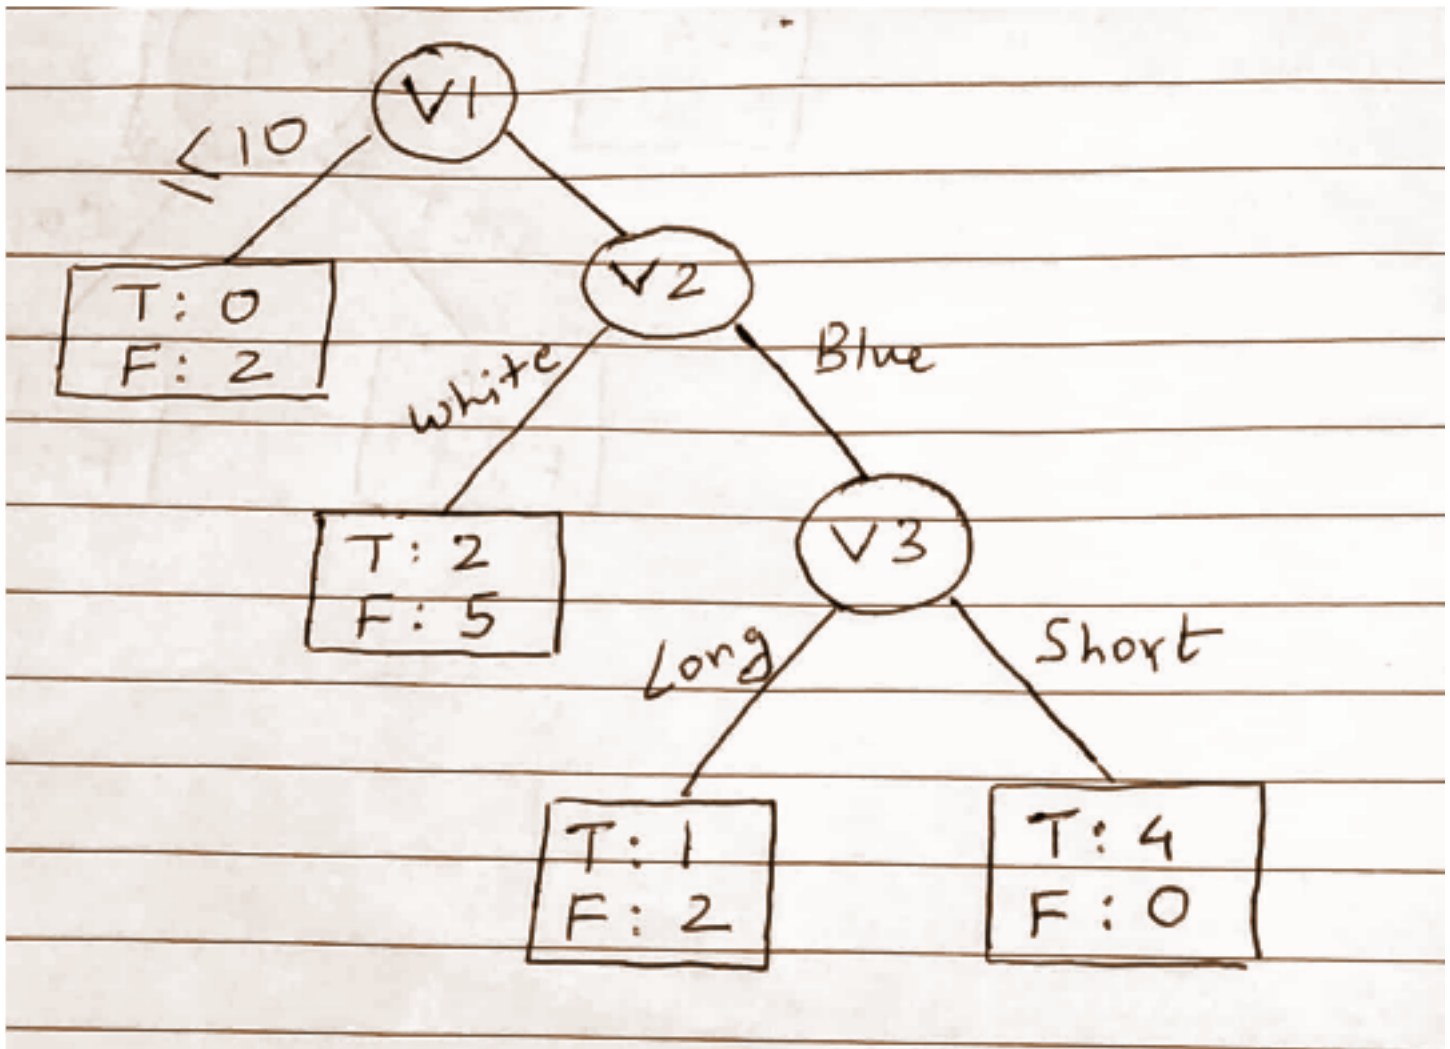 V1
≤10
V2
T: 0
F: 2
White
Blue
V3
T: 2
F: 5
Long
Short
T: 1
F: 2
T: 4
F: 0